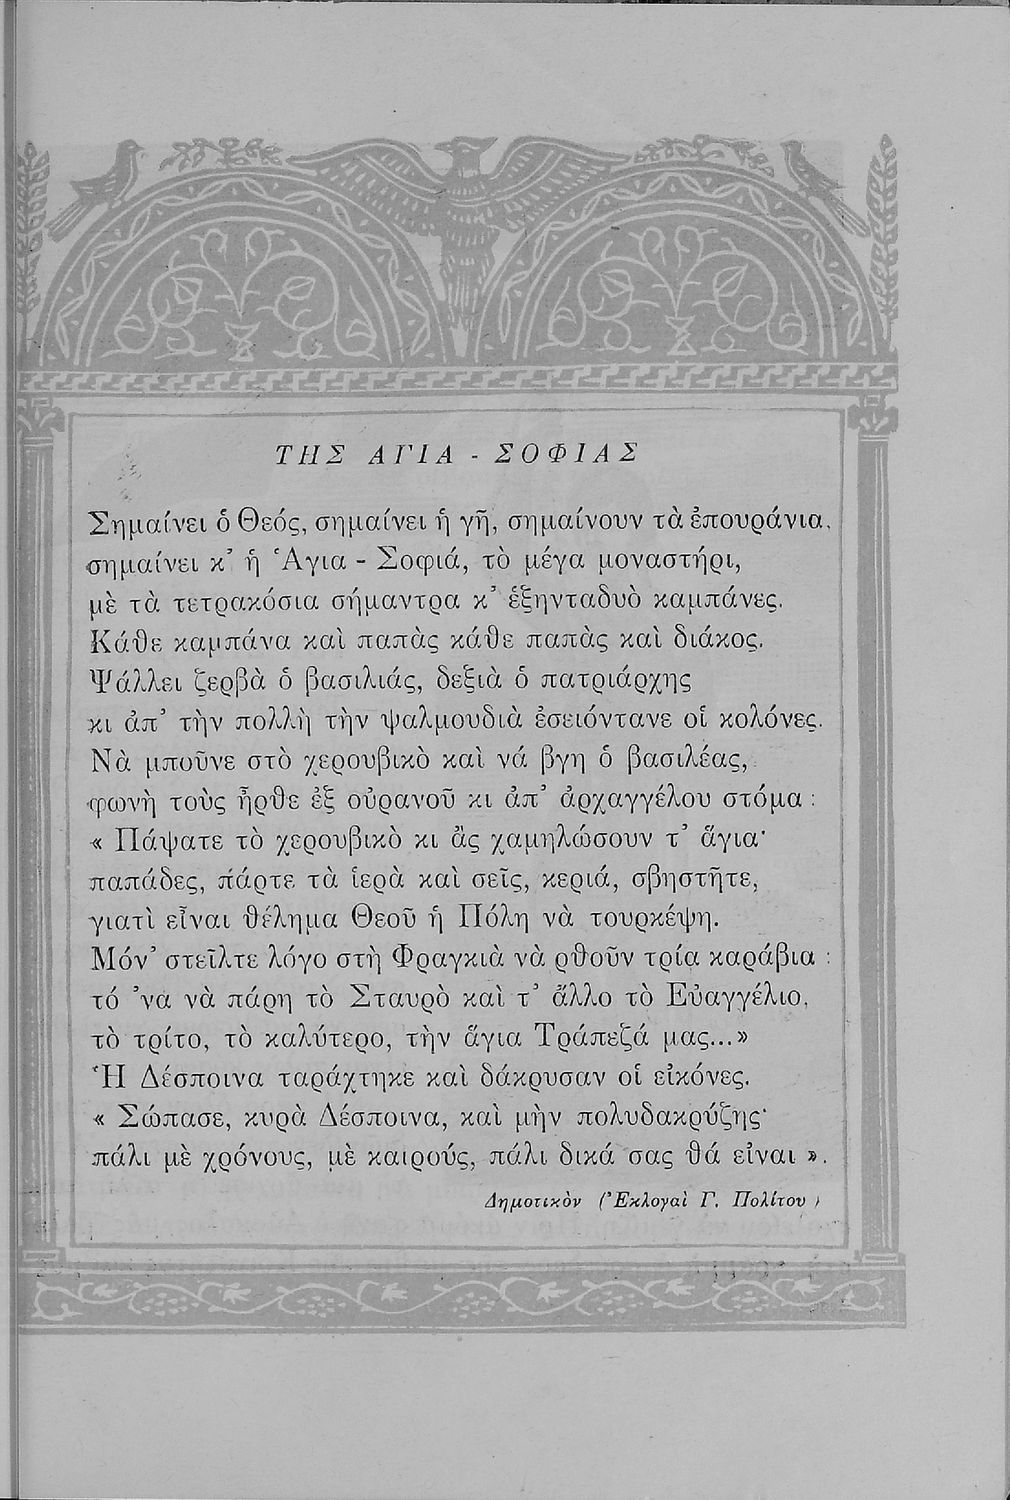 ΤΗΣ ΑΓΙΑ - ΣΟΦΙΑΣ
Σημαίνει ὁ Θεός, σημαίνει ἡ γῆ, σημαίνουν τὰ ἐπουράνια,
σημαίνει κ᾿ ἡ Ἁγια - Σοφιά, τὸ μέγα μοναστήρι,
μὲ τὰ τετρακόσια σήμαντρα κ᾿ ἑξηνταδυὸ καμπάνες.
Κάθε καμπάνα καὶ παπὰς κάθε παπὰς καὶ διάκος.
Ψάλλει ζερβὰ ὁ βασιλιάς, δεξιὰ ὁ πατριάρχης
κι ἀπ᾿ τὴν πολλὴ τὴν ψαλμουδιὰ ἐσειόντανε οἱ κολόνες.
Νὰ μποῦνε στὸ χερουβικὸ καὶ νά βγη ὁ βασιλέας,
φωνὴ τοὺς ἦρθε ἐξ οὐρανοῦ κι ἀπ᾿ ἀρχαγγέλου στόμα :
« Πάψατε τὸ χερουβικὸ κι ἂς χαμηλώσουν τ᾿ ἅγια·
παπάδες, πάρτε τὰ ἱερὰ καὶ σεῖς, κεριά, σβηστῆτε,
γιατὶ εἶναι θέλημα Θεοῦ ἡ Πόλη νὰ τουρκέψη.
Μόν᾿ στεῖλτε λόγο στὴ Φραγκιὰ νὰ ρθοῦν τρία καράβια :
τό ᾿να νὰ πάρη τὸ Σταυρὸ καὶ τ᾿ ἄλλο τὸ Εὐαγγέλιο,
τὸ τρίτο, τὸ καλύτερο, τὴν ἅγια Τράπεζά μας...»
Ἡ Δέσποινα ταράχτηκε καὶ δάκρυσαν οἱ εἰκόνες.
« Σώπασε, κυρὰ Δέσποινα, καὶ μὴν πολυδακρύζης·
πάλι μὲ χρόνους, μὲ καιρούς, πάλι δικά σας θά εἶναι ».
Δημοτικὸν (Ἐκλογαὶ Γ. Πολίτου)